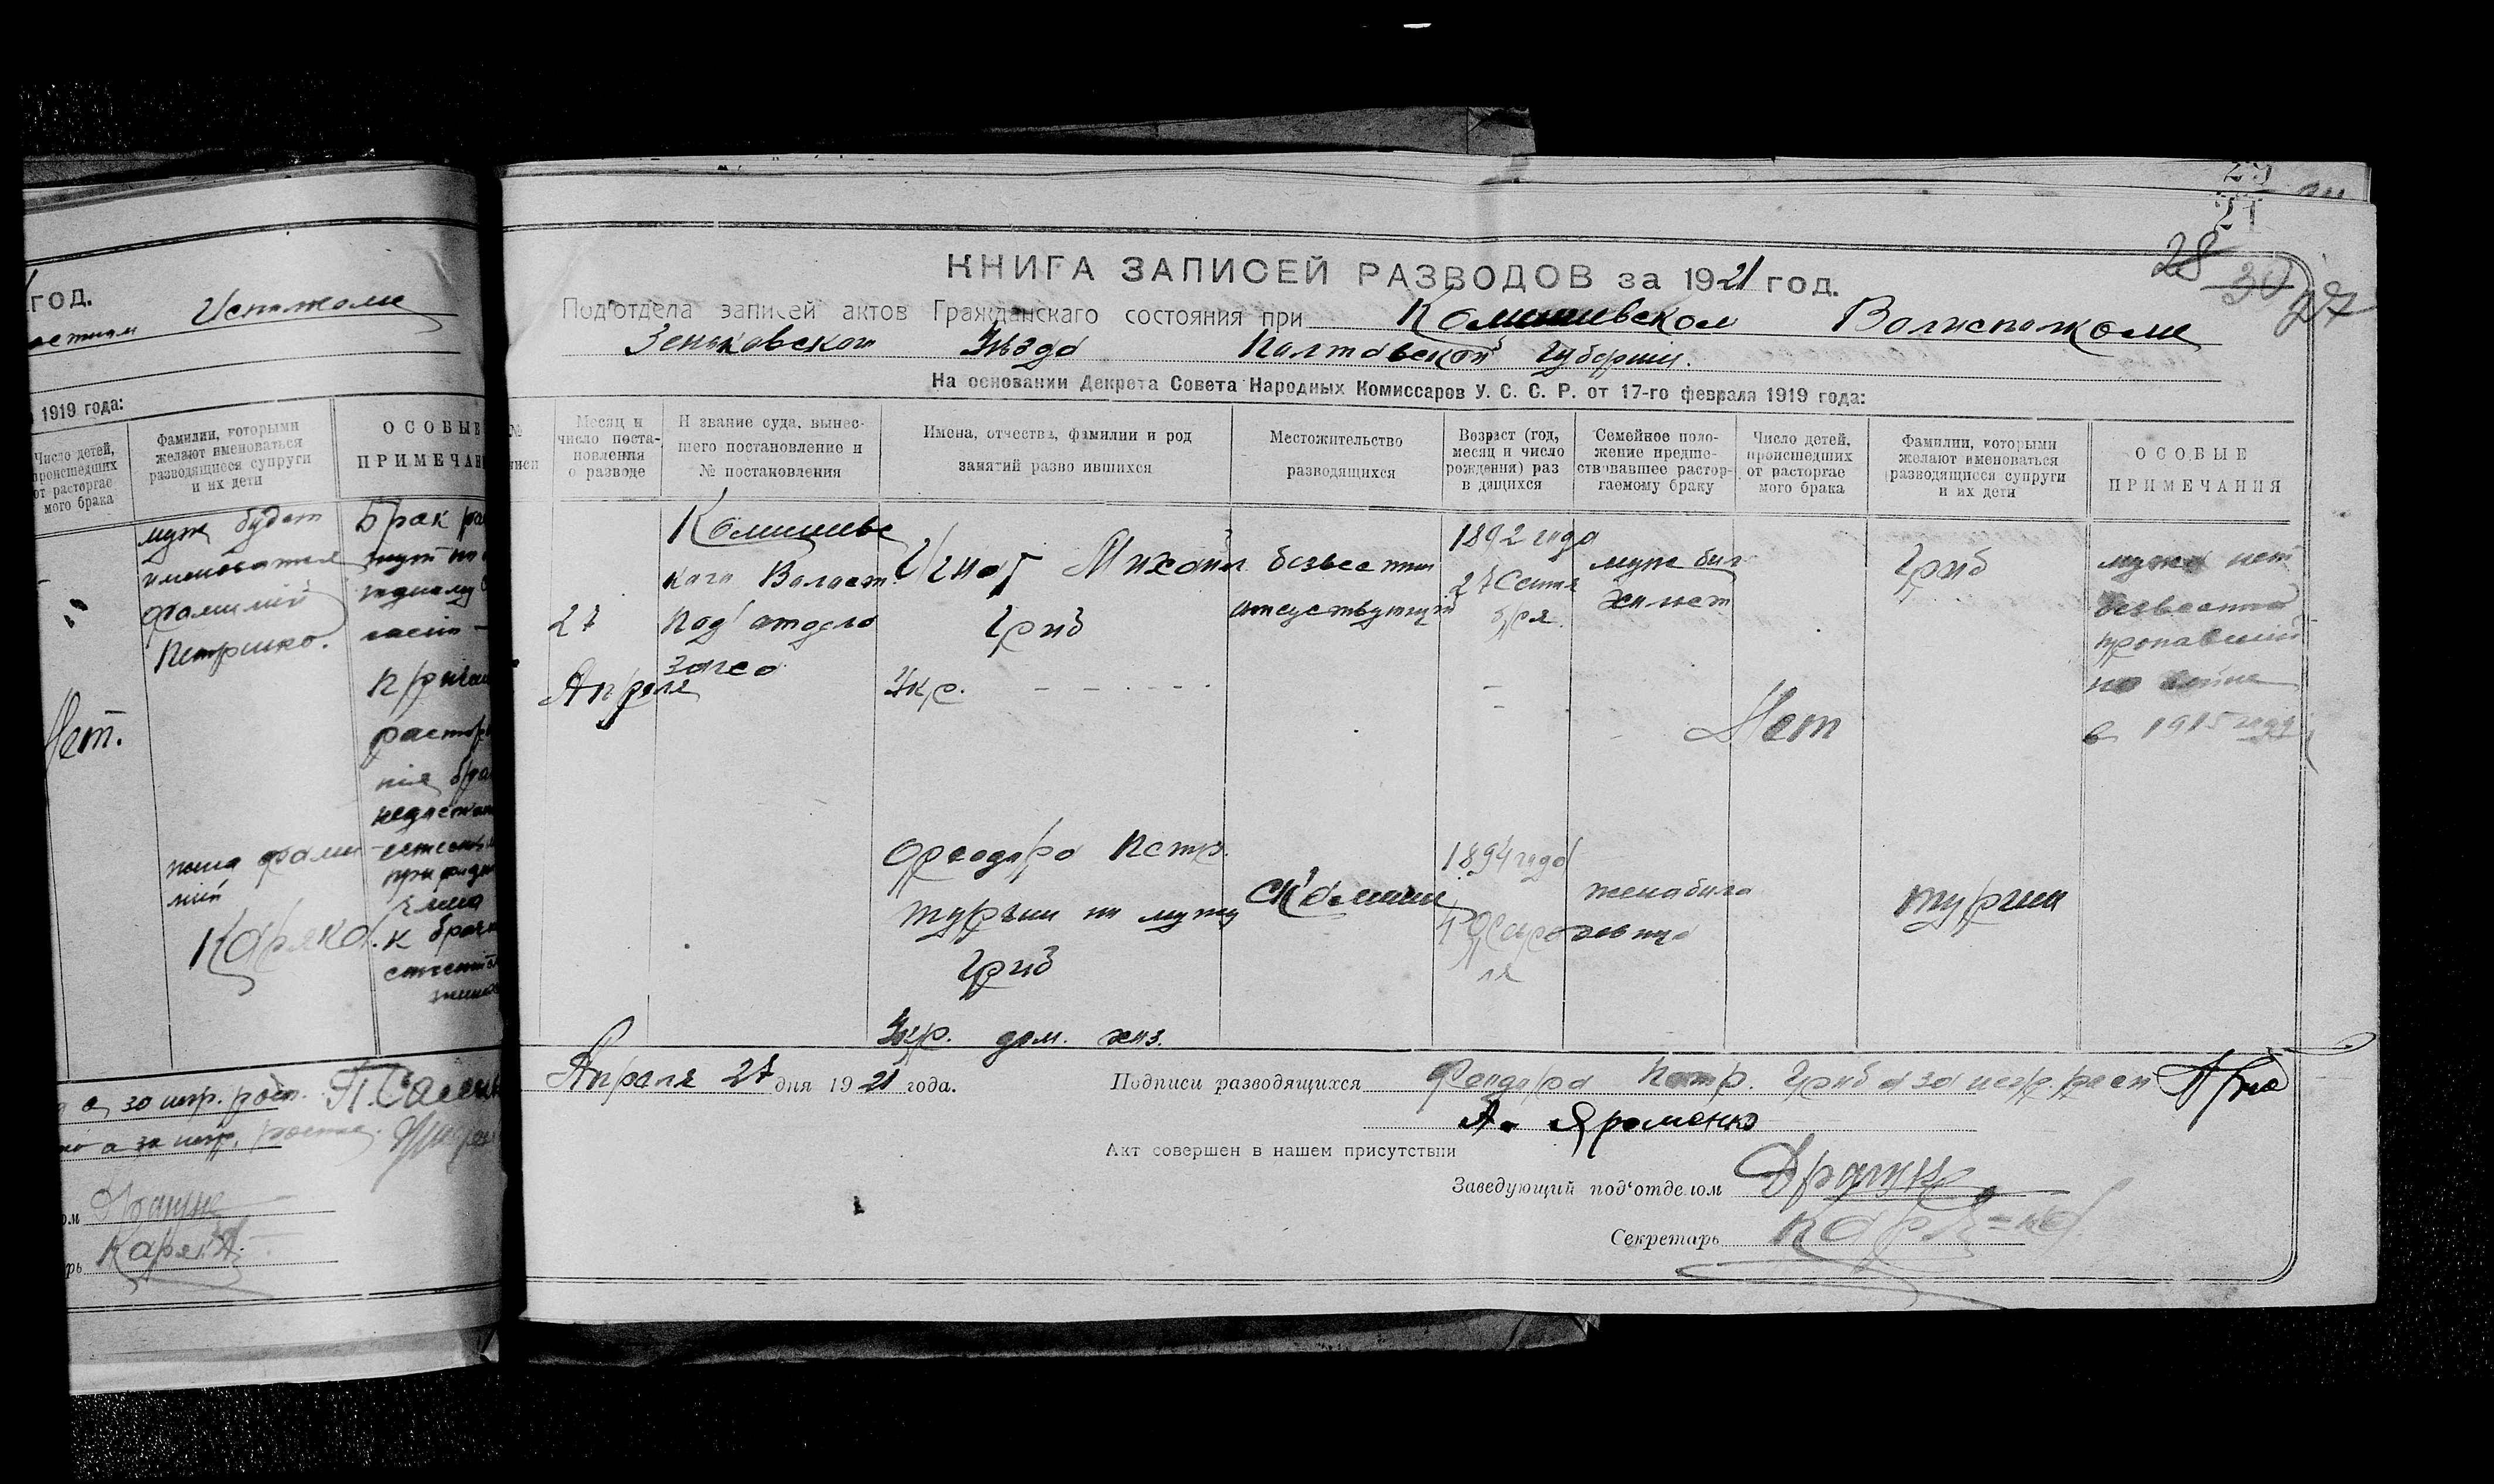 ГОД.
Исполкоме
1919 года:
Число детей,
происшедших
от расторгае
мого брака
Фамилии, которыми
желают именоваться
разводящиеся супруги
и их дети
ОСОБЫЕ
ПРИМЕЧАН
муж будет
именоватся
фамилий
Петренко.
Брак
Нет.
жена фами
лий
Каряка.
к брач
за негр. росп.
а за негр.
Драгун
Каряка
29
21
28
30
27
КНИГА ЗАПИСЕЙ РАЗВОДОВ за 1921 год.
Под'отдела записей актов Гражданскаго состояния при Комишевском Волисполкоме
Зеньковского Уѣзда Полтавской Губернии.
На основании Декрета Совета Народных Комиссаров У. С. С. Р. от 17-го февраля 1919 года:
№
Месяц и
число поста-
новления
о разводе
Н звание суда, вынес-
шего постановление и
№ постановления
Имена, отчества, фамилии и род
занятий разво ившихся
Местожительство
разводящихся
Возраст (год,
месяц и число
рождения) раз
в дящихся
Семейное поло-
жение предше-
ствовавшее растор-
гаемому браку
Число детей,
происшедших
от расторгае
мого брака
Фамилии, которыми
желают именоваться
разводящиеся супруги
и их дети
ОСОБЫЕ
ПРИМЕЧАНИЯ
27
Апреля
Комишевс
кого Волост
Под'отдела
загса
Игнат Михайл
Гриб
Укр.
безвестни
отсуствующий
1892 года
27 Сентя
бря
муж бил
холост
Нет
Гриб
мужа нет
безвестно
пропавший
на войне
в 1915 году
Феодора Петр.
Тургин по мужу
Гриб
Укр. дом. хоз.
1894 года
жена била
девица
Тургин
Апреля 27 дня 1921 года.
Подписи разводящихся Феодора Петр. Гриб а за негр. расп
А. Яроменко
Акт совершен в нашем присутствии
Заведующий под'отделом Драгун
Секретарь